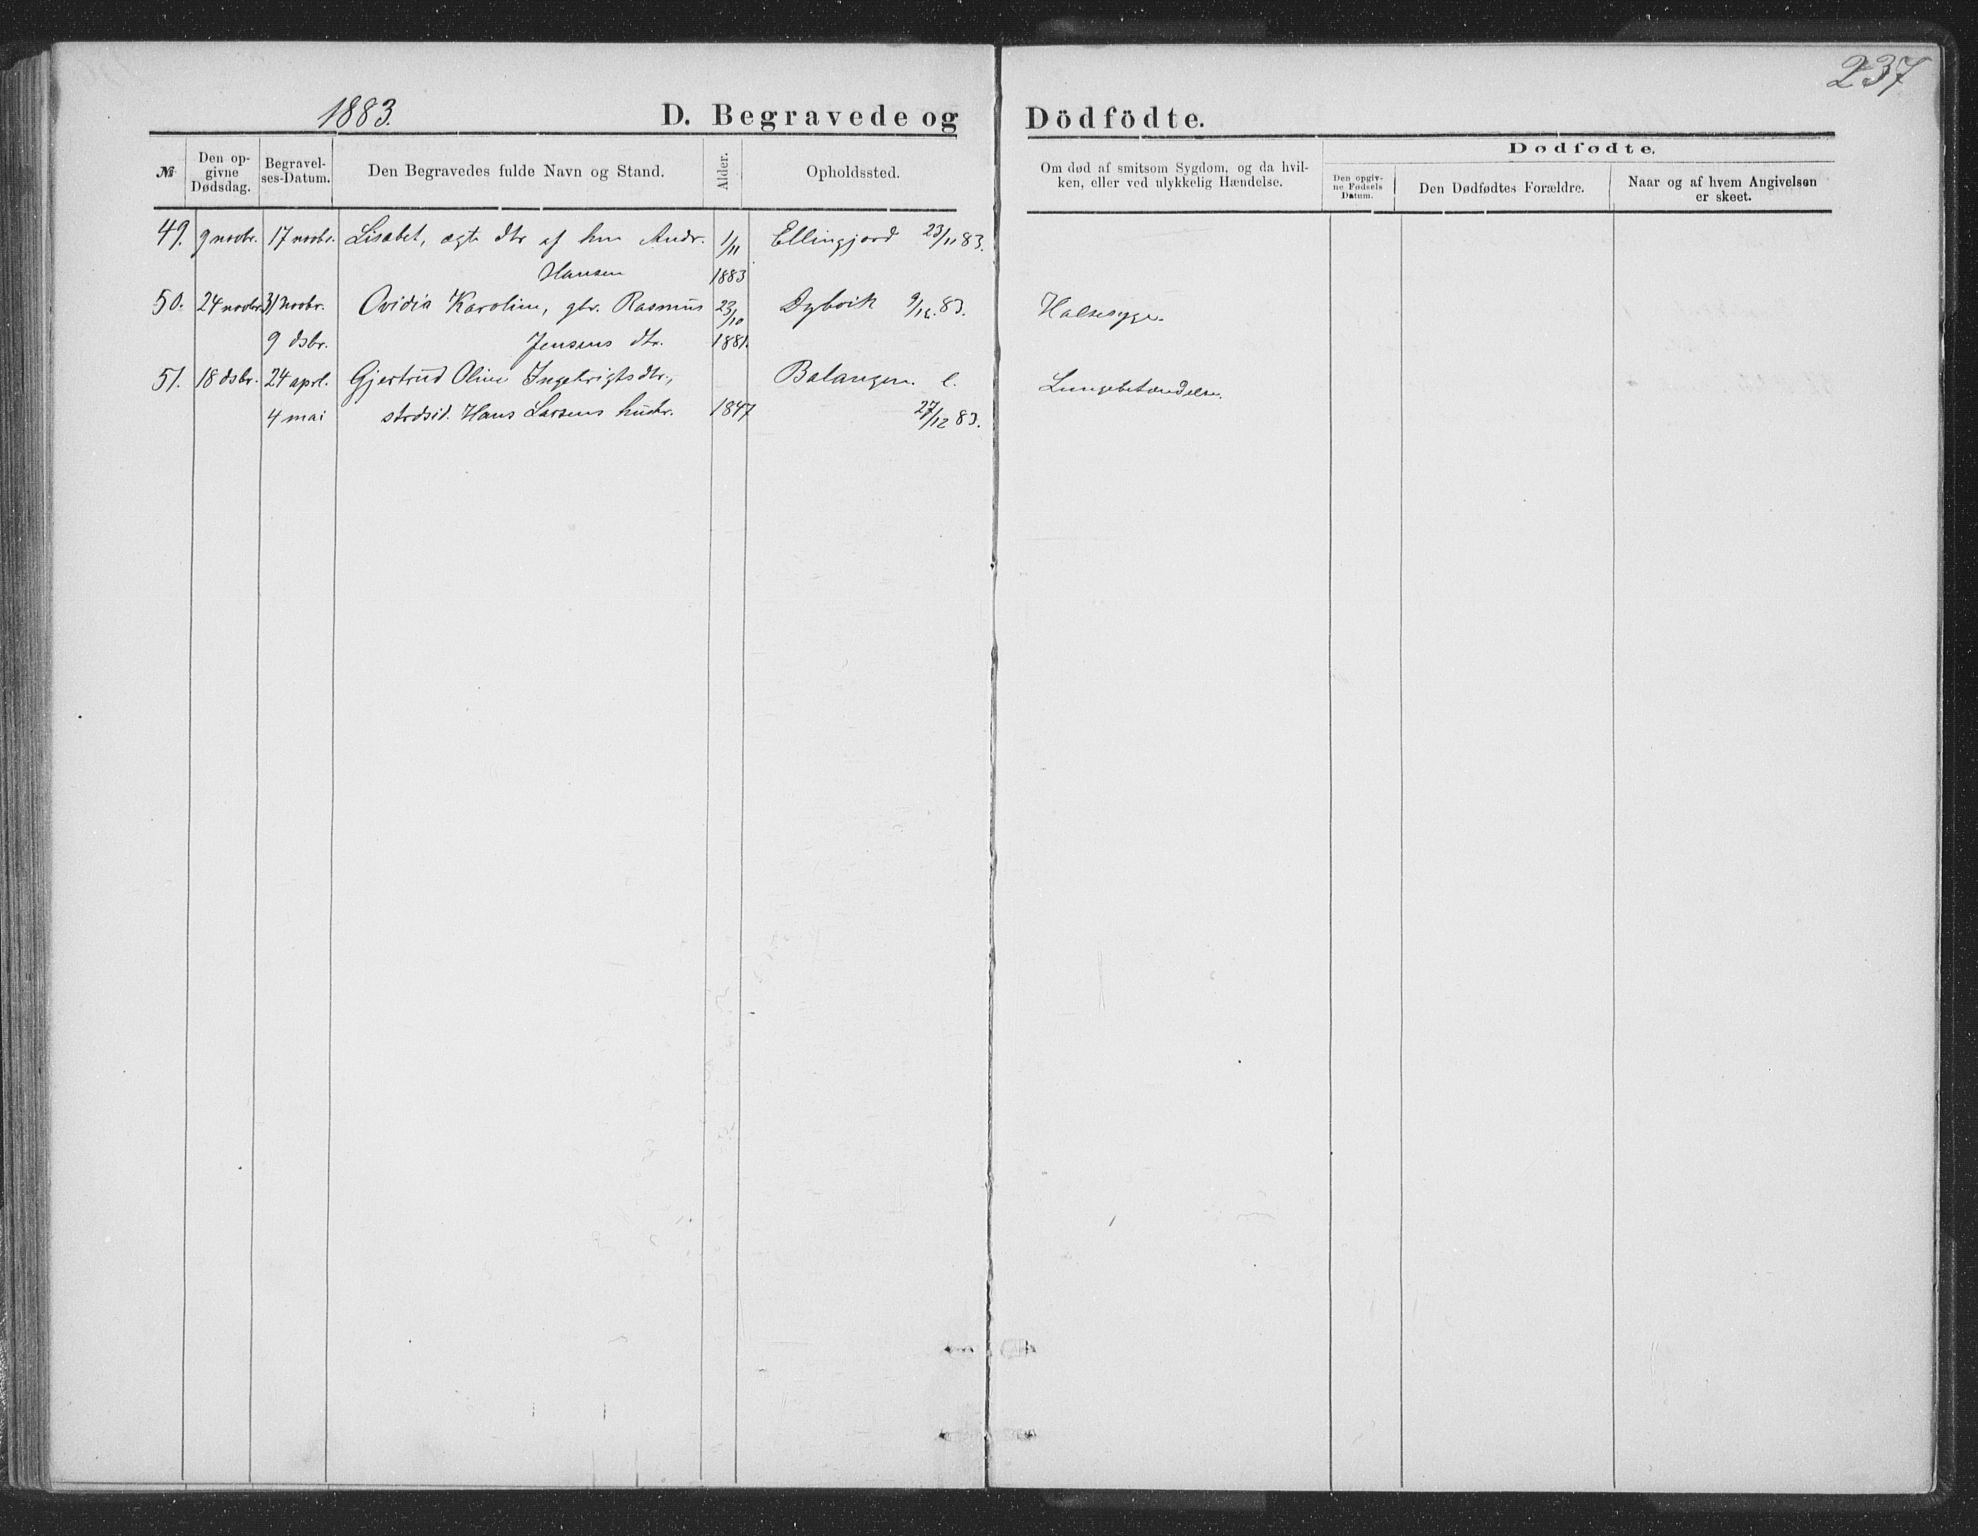 237
1883.
D. Begravede og Dödfödte.
№
Den opgivne Dødsdag.
Begravelses-Datum.
Den Begravedes fulde Navn og Stand.
Alder.
Opholdssted.
Om død af smitsom Sygdom, og da hvilken, eller ved ulykkelig Hændelse.
Dødfødte.
Den opgivne Fødsels Datum.
Den Dødfødtes Forældre.
Naar og af hvem Angivelsen er skeet.
49. 9 novbr. 17 novbr. Lisabet, ægte dtr af Andr. 1/11 Ellingjord 23/11 83.
Hansen 1883
50. 24 novbr. Ovidia Karoline, gbr. Rasmus 23/10 Dybvik 9/12. 83. Halsesyge.
9 dsbr. Jensens dtr. 1881.
51. 18 dsbr. 24 aprl. Gjertrud Oline Ingebrigtsdtr., Balangen. l. Lungebetændelse.
4 mai strdsid. Hans Larsens hustr. 1847 27/12 83.